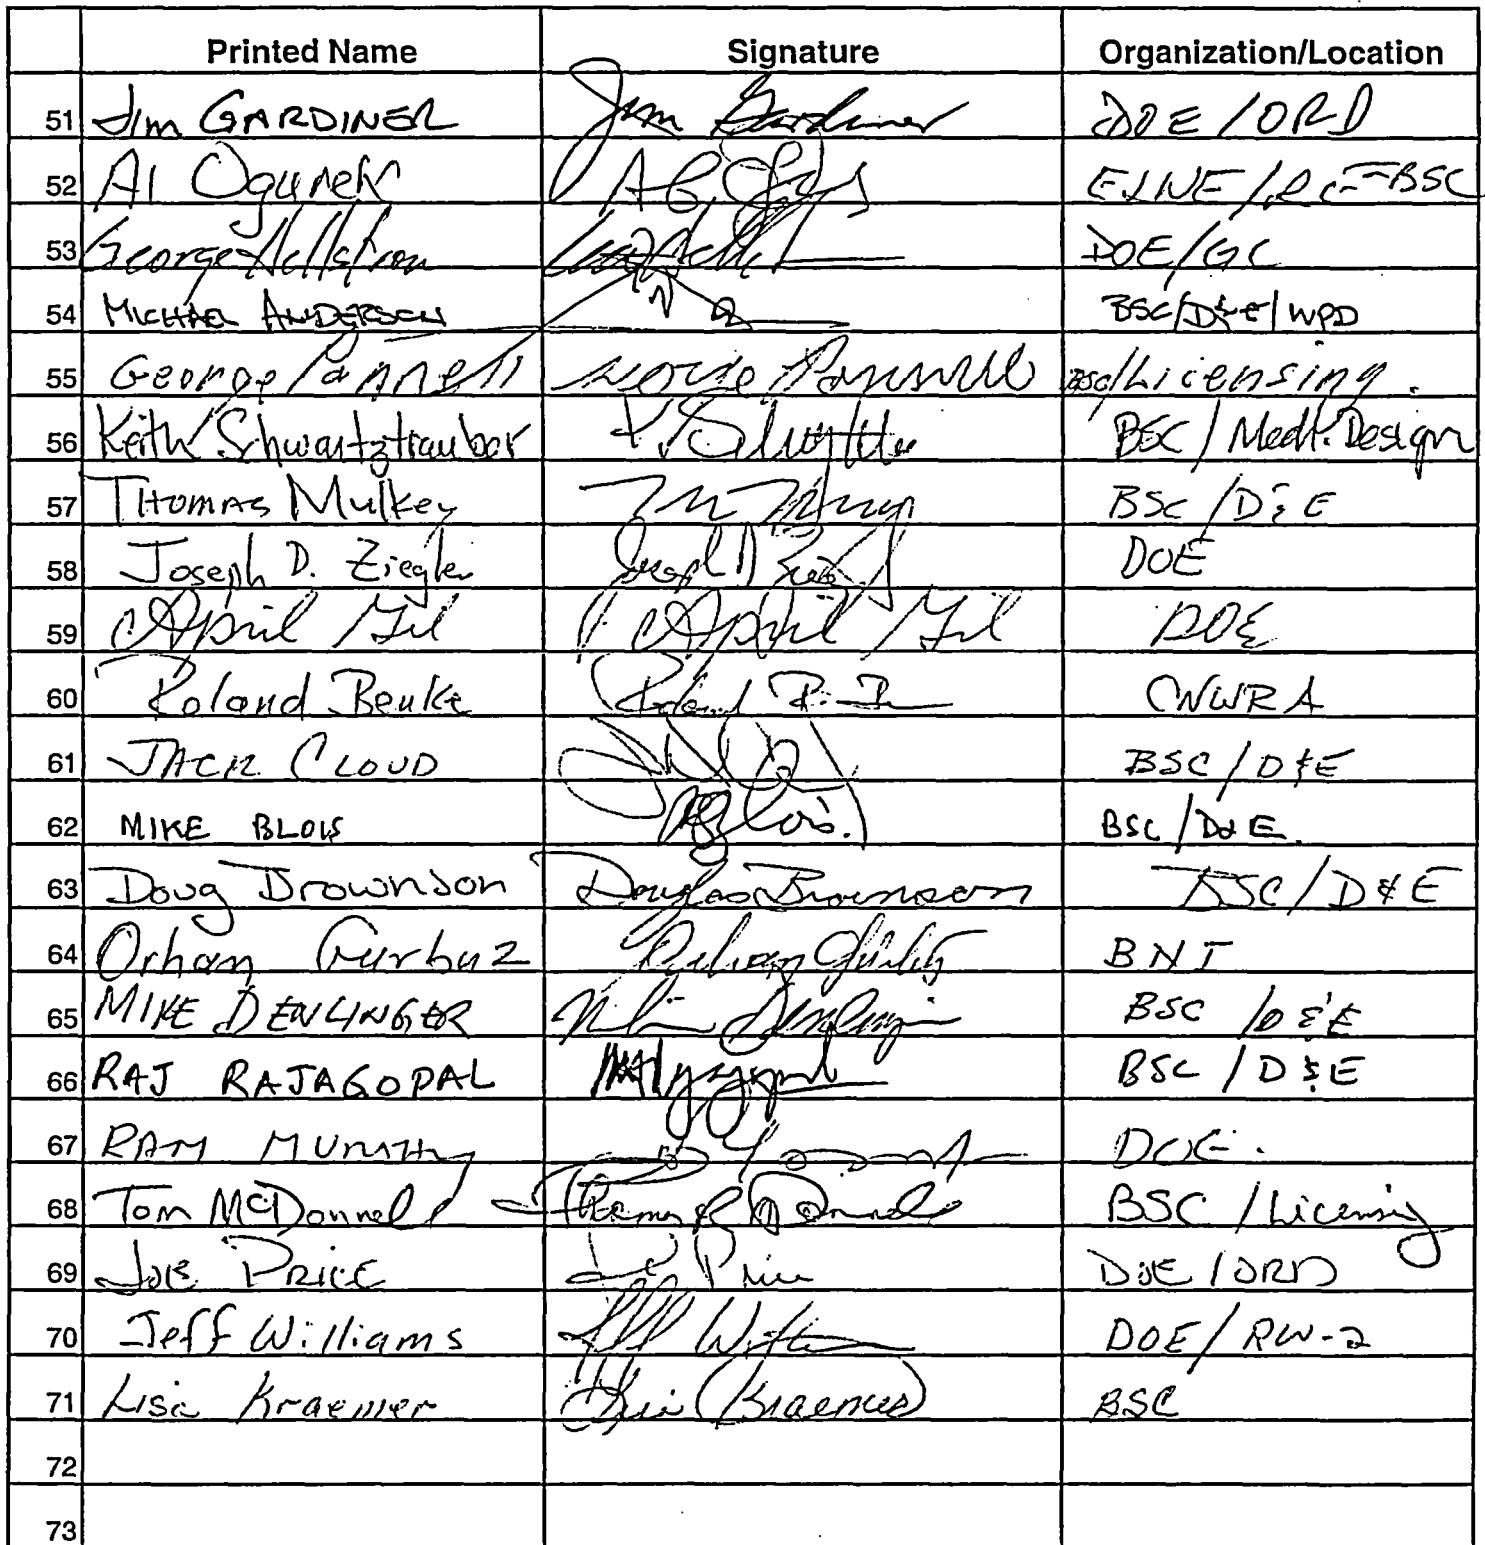 Printed Name Signature Organization/Location
51 Jim GARDINER Jim Gardiner DOE/ORD
52 Al Ogurek
53 George Hellstrom DOE/GC
54 MICHAEL ANDERSON BSC/D&E/WPD
55 George Pannell George Pannell BSC/Licensing.
56 Keith Schwartztrauber BSC/Design
57 THOMAS Mulkey BSC/D&E
58 Joseph D. Ziegler Joseph D Ziegler DOE
59 April Gil April Gil DOE
60 Roland Benke CNWRA
61 JACK CLOUD BSC/D&E
62 MIKE BLOIS Blois. BSC/D&E
63 Doug Brownson Douglas Brownson BSC/D&E
64 Orhan Gurbuz Orhan Gurbuz BNI
65 MIKE DENLINGER BSC/D&E
66 RAJ RAJAGOPAL BSC/D&E
67 RAM MURTHY DOE.
68 Tom McDonnell BSC/Licensing
69 Joe PRICE Price DOE/ORD
70 Jeff Williams DOE/RW-2
71 Lisa Kraemer Kraemer BSC
72
73